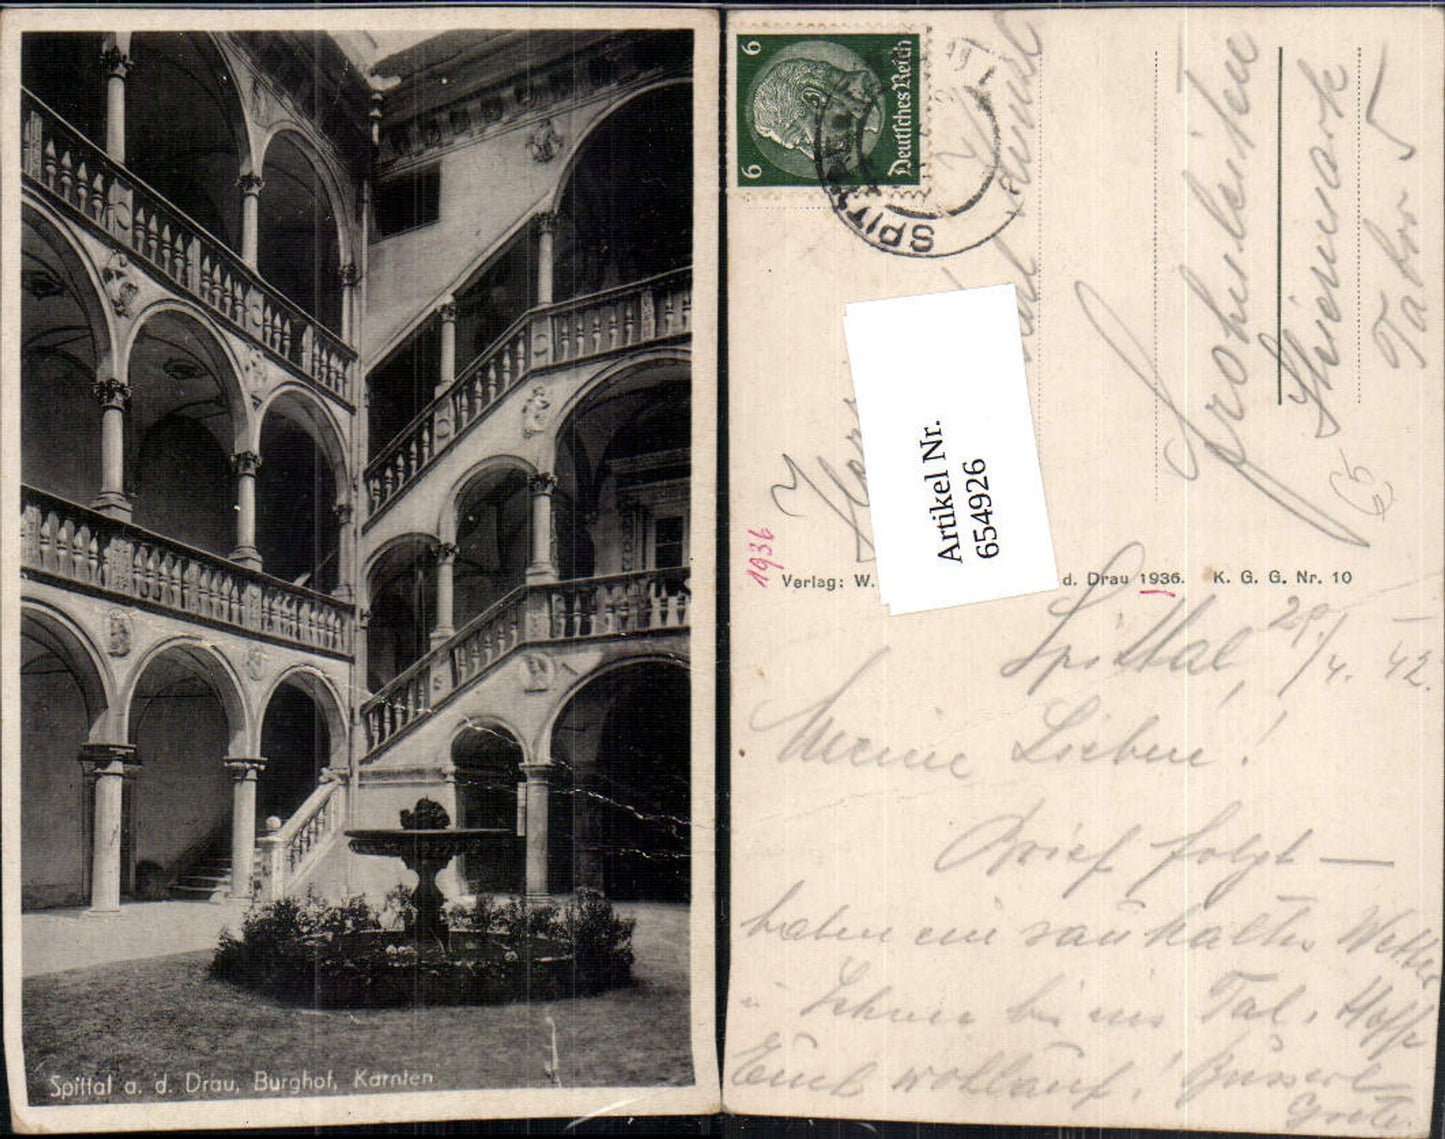 Spittal a. d. Drau, Burghof, Kärnten
6 6
Deutsches Reich
SPIT
Frohnleiten
Steiermark
Tabor 5
65
Artikel Nr.
654926
1936
Verlag: W. d. Drau 1936. K. G. G. Nr. 10
Spittal, 29./4. 42.
Meine Lieben!
Brief folgt —
haben ein saukaltes Wetter
u. Schnee bis ins Tal. Hoffe
Euch wohlauf! Busserl
Grete.